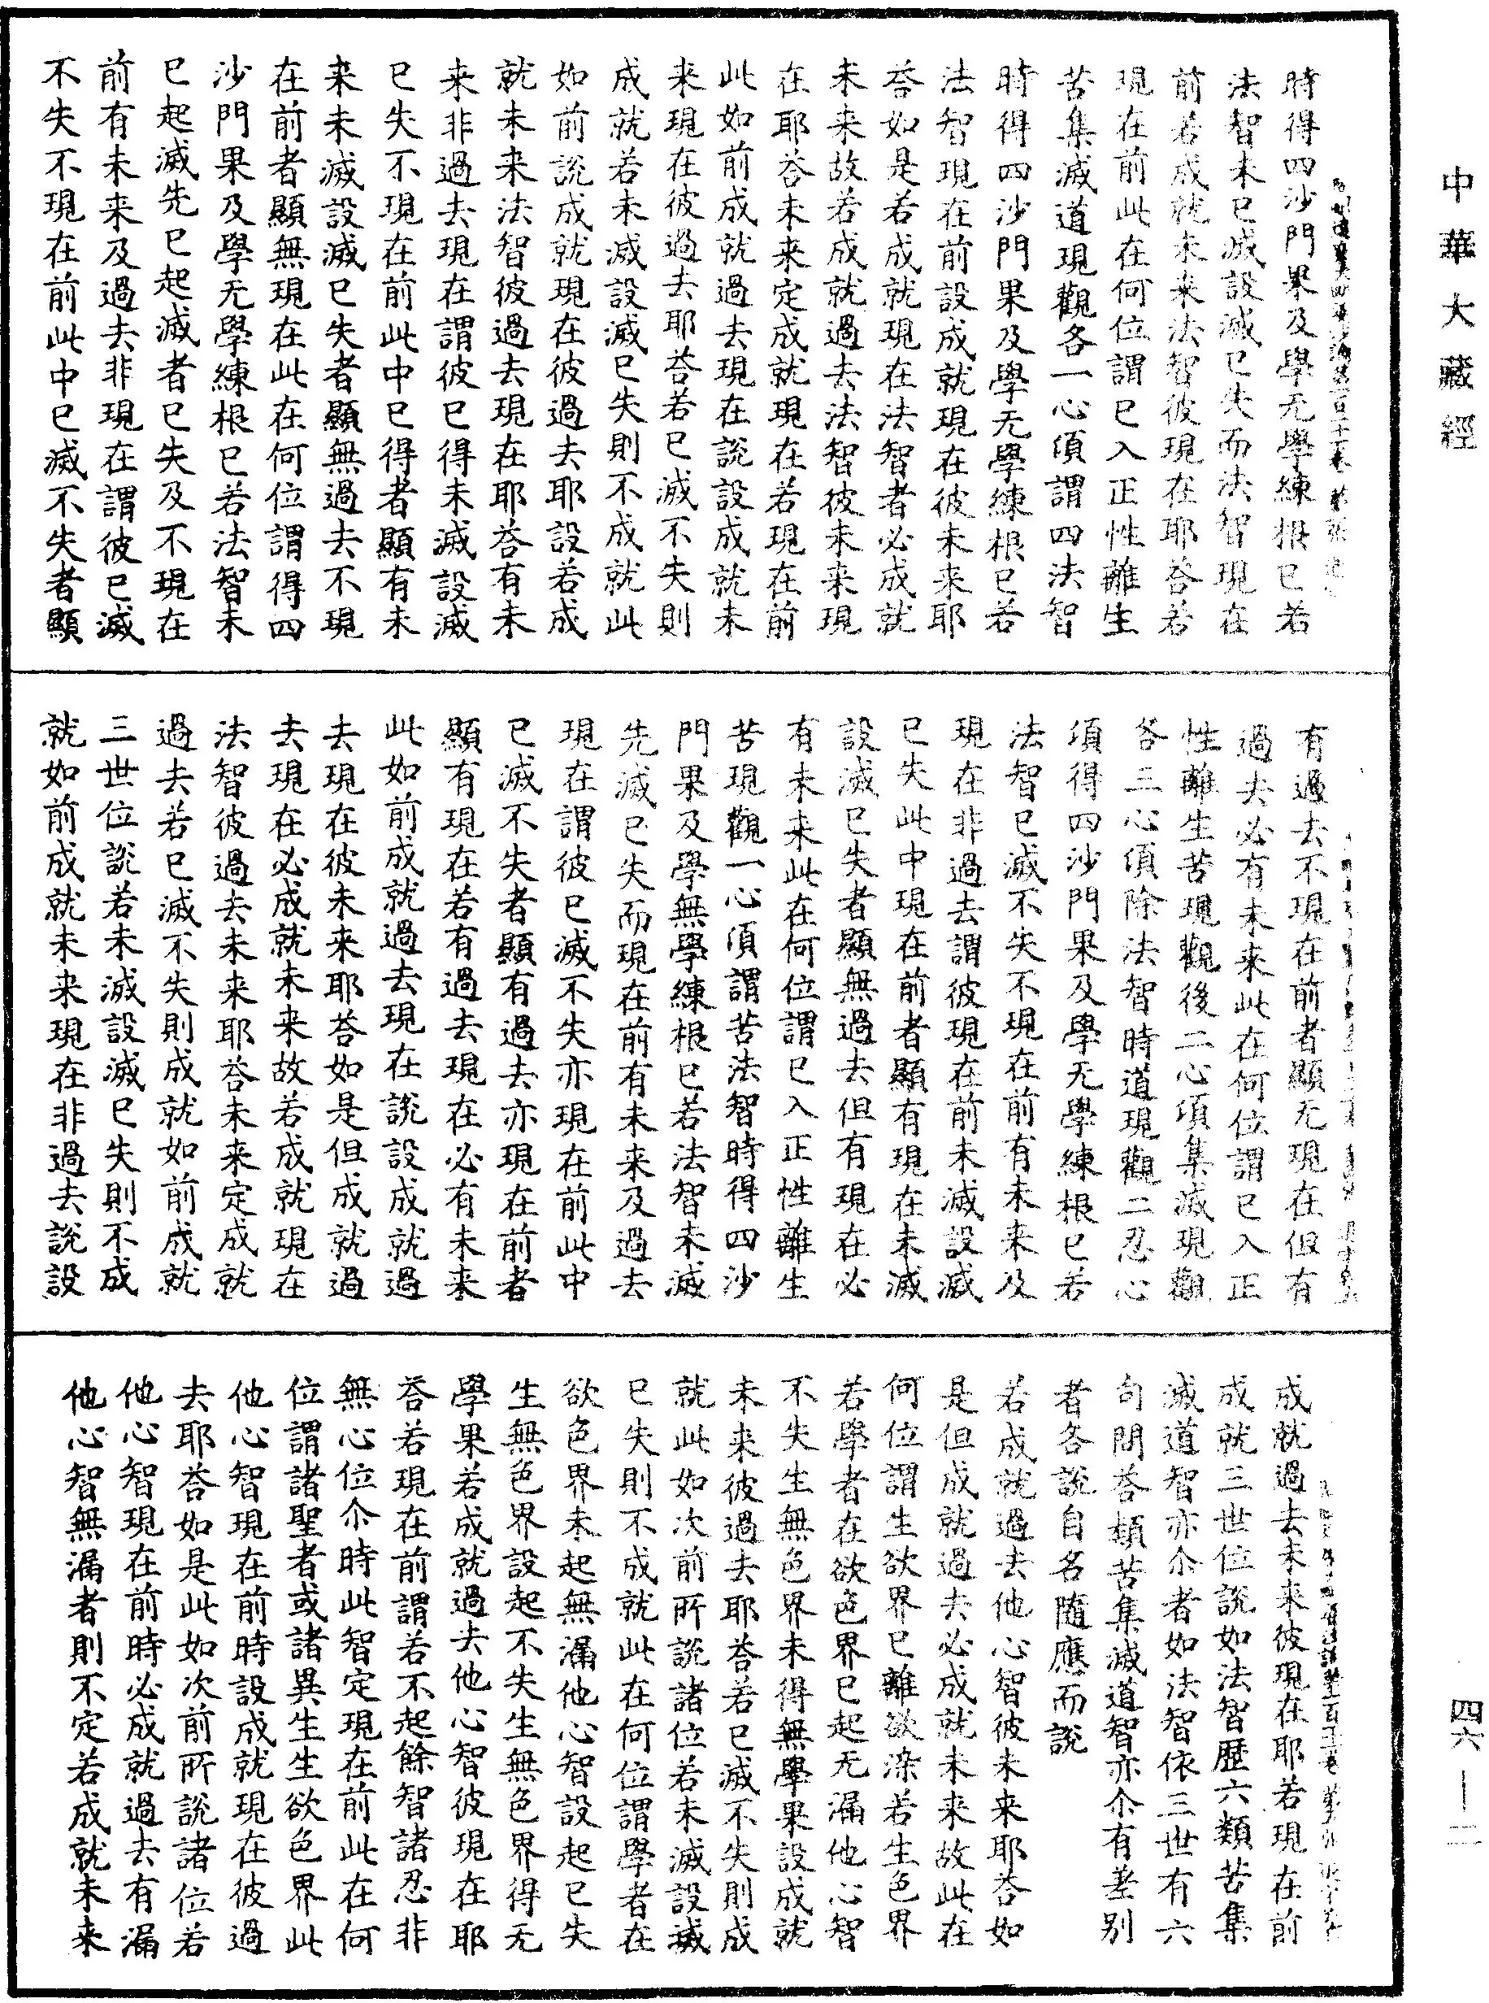 中華大藏經
時得四沙門果及學无學練根已若
法智未已滅設滅已失而法智現在
前若成就未来法智彼現在耶荅若
現在前此在何位謂已入正性離生
苦集滅道現觀各一心湏謂四法智
時得四沙門果及學无學練根已若
法智現在前設成就現在彼未来耶
荅如是若成就現在法智者必成就
未来故若成就過去法智彼未来現
在耶荅未来定成就現在若現在前
此如前成就過去現在說設成就未
来現在彼過去耶荅若已滅不失則
成就若未滅設滅已失則不成就此
如前說成就現在彼過去耶設若成
就未来法智彼過去現在耶荅有未
来非過去現在謂彼已得未滅設滅
已失不現在前此中已得者顯有未
来未滅設滅已失者顯無過去不現
在前者顯無現在此在何位謂得四
沙門果及學无學練根已若法智未
已起滅先已起滅者已失及不現在
前有未来及過去非現在謂彼已滅
不失不現在前此中已滅不失者顯
有過去不現在前者顯无現在但有
過去必有未来此在何位謂已入正
性離生苦現觀後二心湏集滅現觀
各三心湏除法智時道現觀二忍心
湏得四沙門果及學无學練根已若
法智已滅不失不現在前有未来及
現在非過去謂彼現在前未滅設滅
已失此中現在前者顯有現在未滅
設滅已失者顯無過去但有現在必
有未来此在何位謂已入正性離生
苦現觀一心湏謂苦法智時得四沙
門果及學無學練根已若法智未滅
先滅已失而現在前有未来及過去
現在謂彼已滅不失亦現在前此中
已滅不失者顯有過去亦現在前者
顯有現在若有過去現在必有未来
此如前成就過去現在說設成就過
去現在彼未来耶荅如是但成就過
去現在必成就未来故若成就現在
法智彼過去未来耶荅未来定成就
過去若已滅不失則成就如前成就
三世位說若未滅設滅已失則不成
就如前成就未来現在非過去說設
成就過去未来彼現在耶若現在前
成就三世位說如法智歷六類苦集
滅道智亦尒者如法智依三世有六
句問荅類苦集滅道智亦尒有差別
者各說自名隨應而說
若成就過去他心智彼未来耶荅如
是但成就過去必成就未来故此在
何位謂生欲界已離欲染若生色界
若學者在欲色界已起无漏他心智
不失生無色界未得無學果設成就
未来彼過去耶荅若已滅不失則成
就此如次前所說諸位若未滅設滅
已失則不成就此在何位謂學者在
欲色界未起無漏他心智設起已失
生無色界設起不失生無色界得无
學果若成就過去他心智彼現在耶
荅若現在前謂若不起餘智諸忍非
無心位尒時此智定現在前此在何
位謂諸聖者或諸異生生欲色界此
他心智現在前時設成就現在彼過
去耶荅如是此如次前所說諸位若
他心智現在前時必成就過去有漏
他心智無漏者則不定若成就未来
四六—二